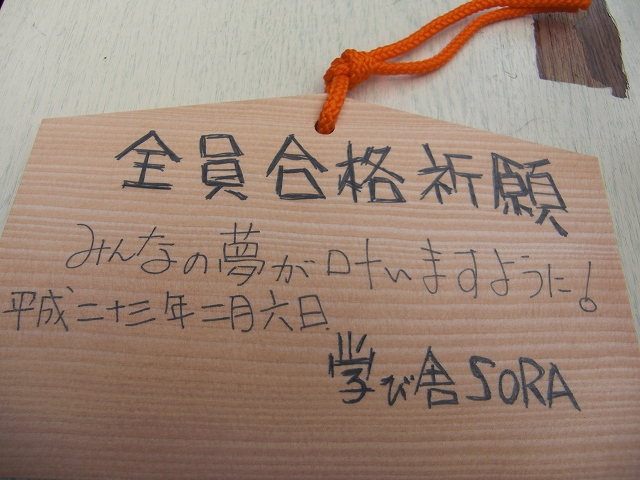 全員合格祈願
みんなの夢が叶いますように!
平成二十三年二月六日
学び舎SORA